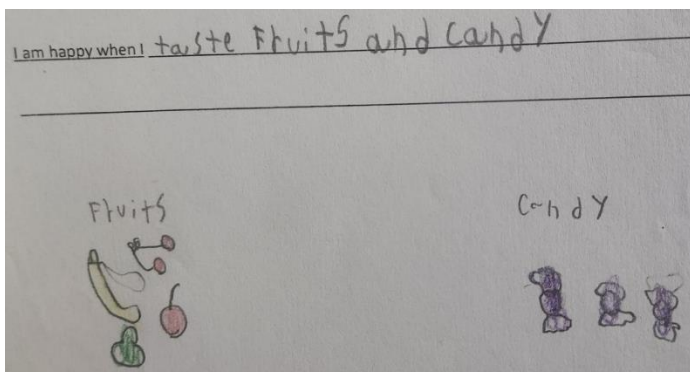 I am happy when I taste Fruits and candy
Fruits
Candy